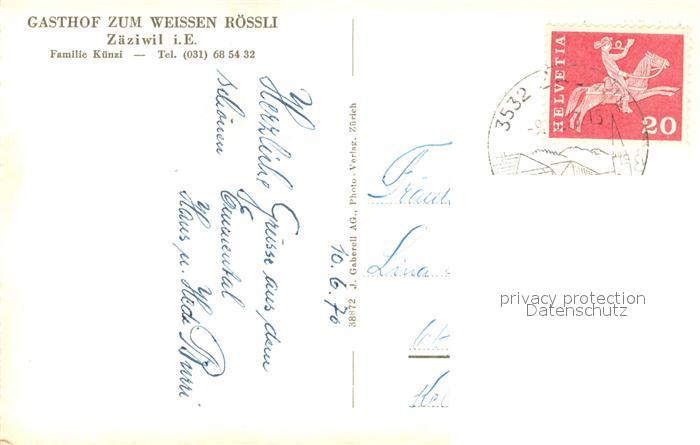 GASTHOF ZUM WEISSEN RÖSSLI
Zäziwil i.E.
Familie Künzi — Tel. (031) 68 54 32
Herzliche Grüsse aus dem
schönen Emmental
Hans u. Hedi Burri
10.6.70
38872 J. Gaberell AG., Photo-Verlag, Zürich
HELVETIA
20
3532
Fräul
Lina
privacy protection
Datenschutz